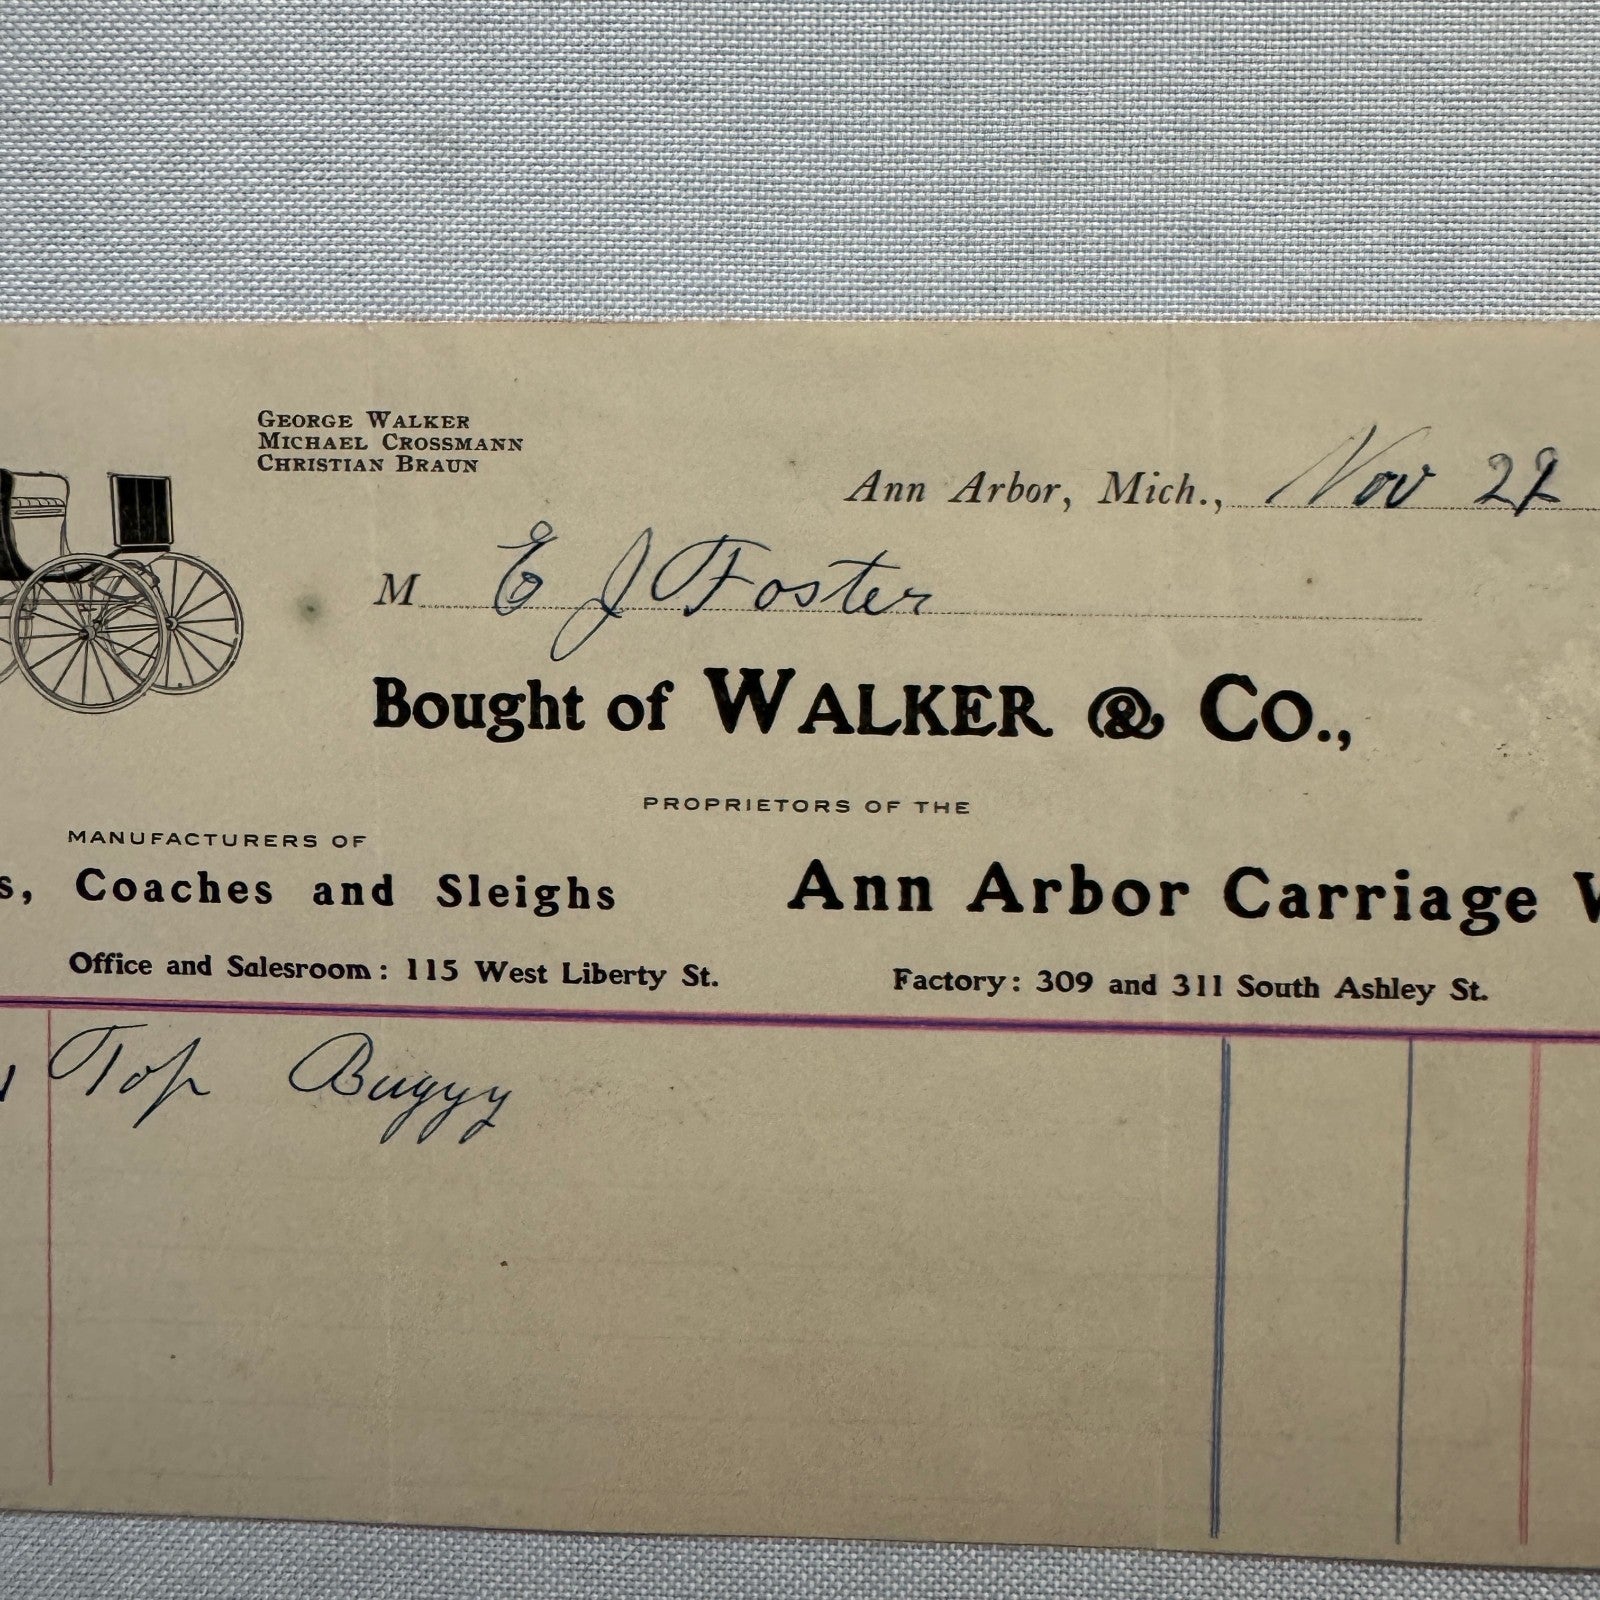 GEORGE WALKER
MICHAEL CROSSMANN
CHRISTIAN BRAUN
Ann Arbor, Mich., Nov 22
M E J Foster
Bought of WALKER & CO.,
PROPRIETORS OF THE
MANUFACTURERS OF
s, Coaches and Sleighs
Ann Arbor Carriage
Office and Salesroom: 115 West Liberty St.
Factory: 309 and 311 South Ashley St.
Top Buggy